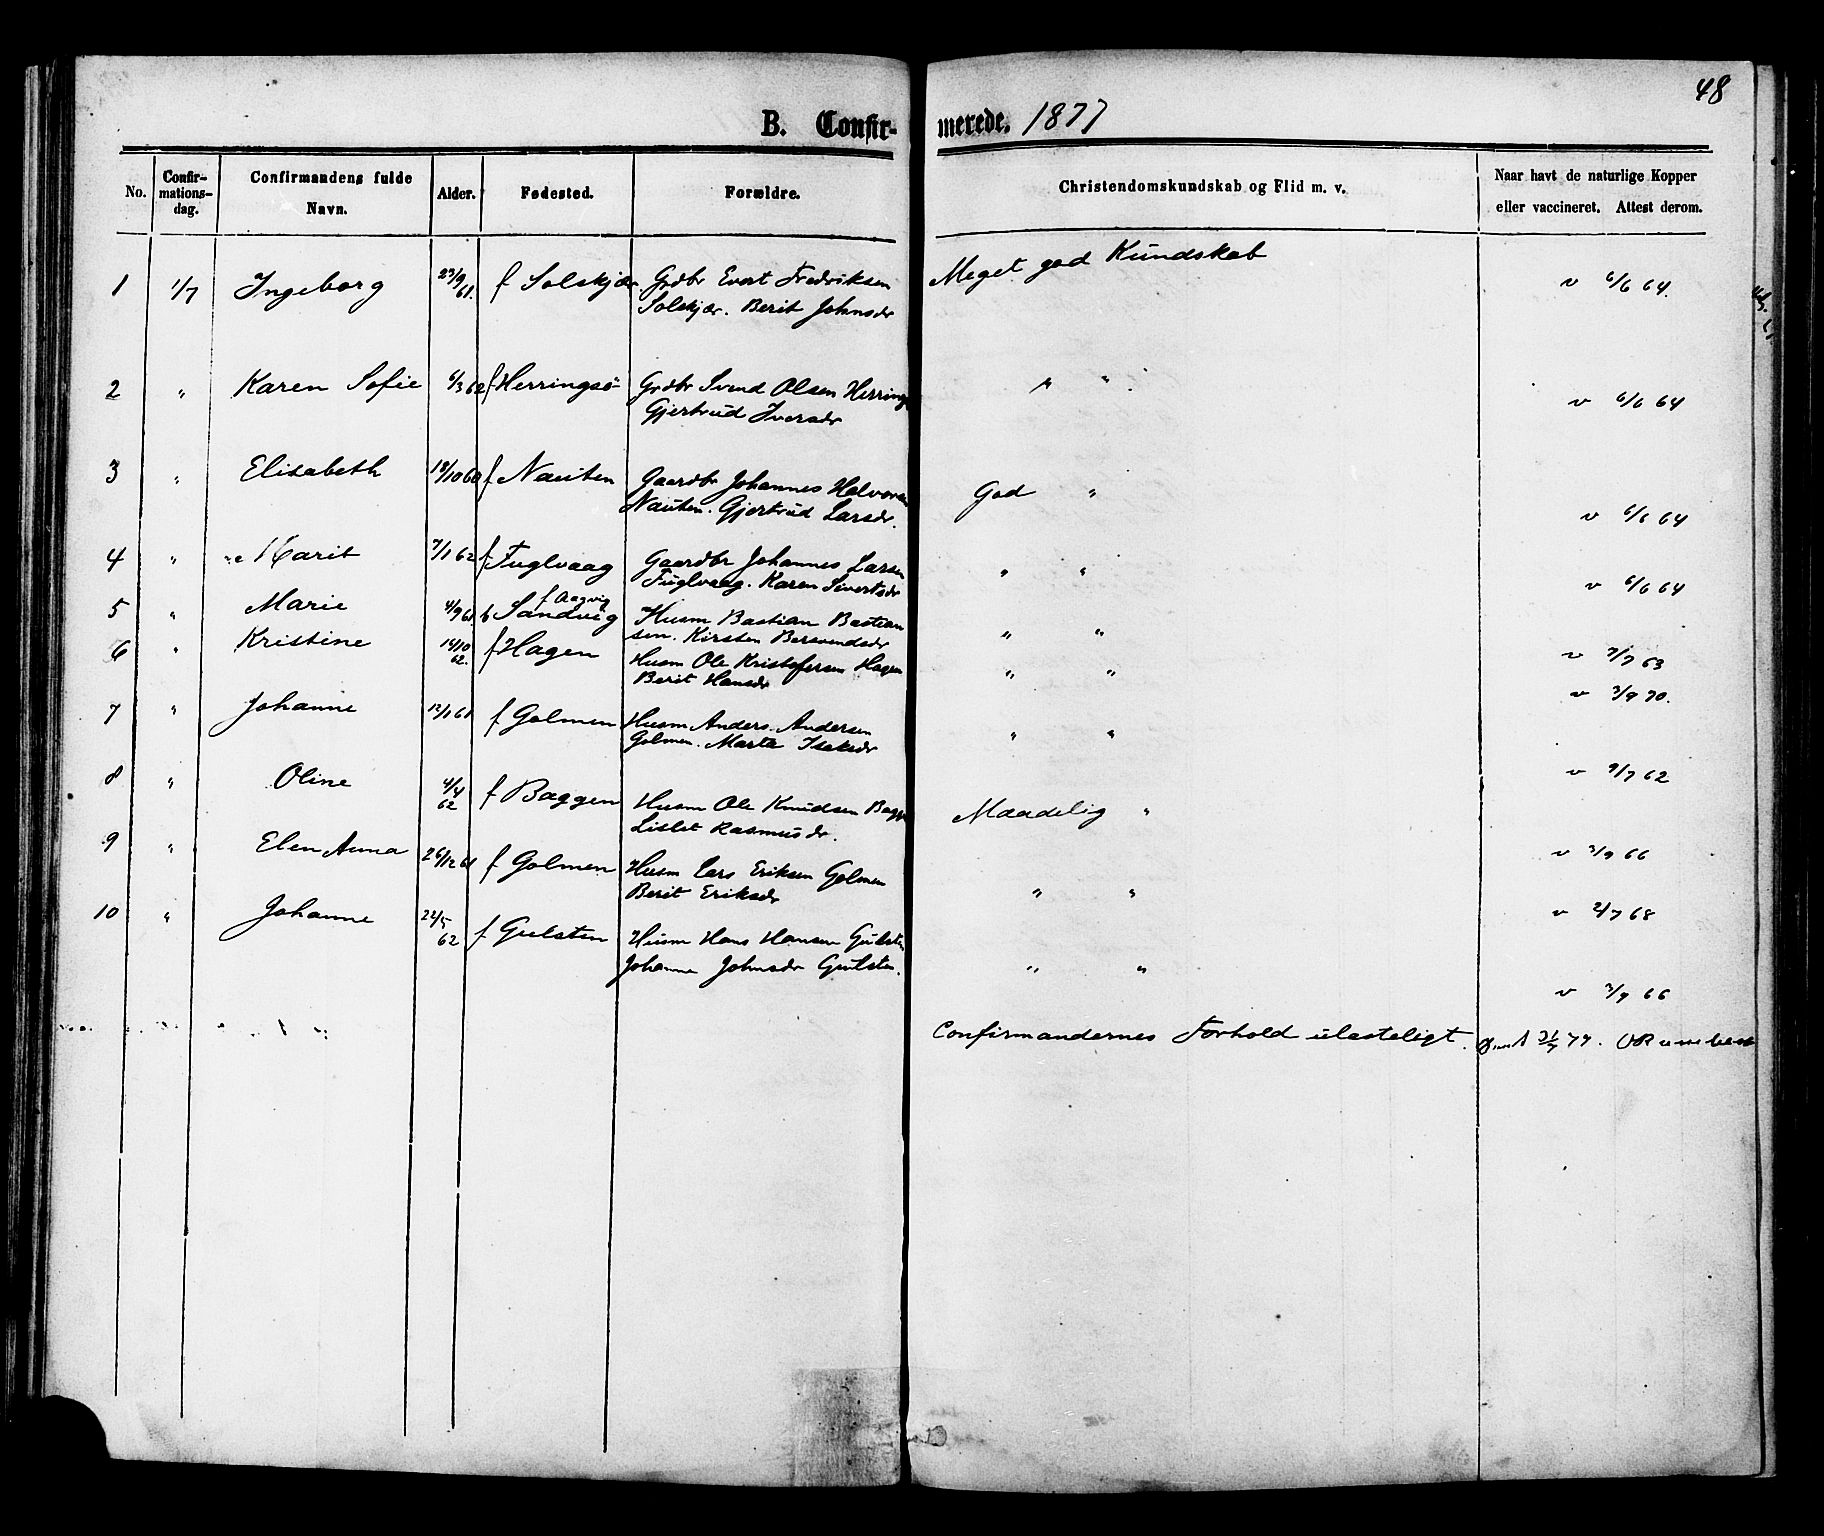 48
B. Confirmerede. 1877
No. Confirmationsdag. Confirmandens fulde Navn. Alder. Fødested. Forældre. Christendomskundskab og Flid m. v. Naar havt de naturlige Kopper eller vaccineret. Attest derom.
1 1/7 Ingeborg 23/9 61. f Solskjær. Grdbr Evert Fredriksen Meget god Kundskab v 6/6 64.
Solskjær. Berit Johnsdr
2 " Karen Sofie 6/3 62 f Herringsö Grdbr Svend Olsen Herrings " " v 6/6 64
Gjertrud Iversdr
3 " Elisabeth 18/10 60 f Nauten Gaardbr Johannes Halvorsen God " v 6/6 64
Nauten. Gjertrud Larsdr.
4 " Marit 7/1 62 f Fuglvaag Gaardbr Johannes Larsen " " v 6/6 64
Fuglvaag. Karen Sivertsdr
f Aagvig
5 " Marie 4/9 61 b Sandvig Husm Bastian Bastian " " v 7/7 63
sen. Kirsten Berevendsdr
6 " Kristine 14/10 62. f Hagen Husm Ole Kristofersen Hagen " " v 3/9 70.
Berit Hansdr
7 " Johanne 12/1 61 f Golmen Husm Anders. Andersen " " v 9/7 62
Golmen. Marta Isaksdr
8 " Oline 4/4 62 f Baggen Husm Ole Knudsen Bagge Maadelig " v 3/9 66
Lislet Rasmusdr.
9 " Elen Anna 26/12 61 f Golmen Husm Lars Eriksen Golmen " " v 2/7 68
Berit Eriksdr
10 " Johanne 22/5 62 f Gulsten Husm Hans Hansen Gulsten " " v 3/9 66
Johanne Johnsdr Gulsten.
Confirmandernes Forhold ulasteligt. 77.